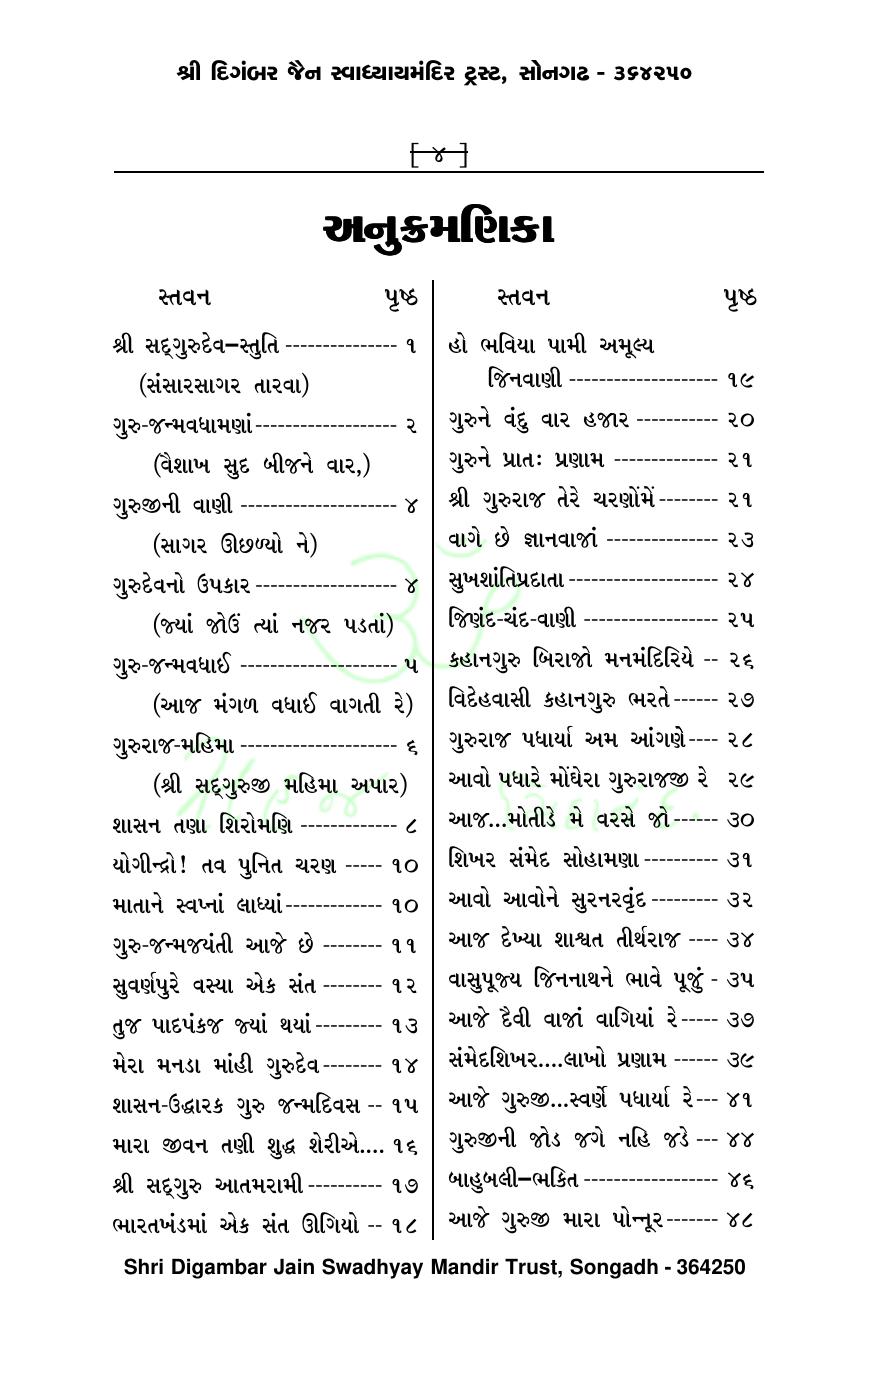 શ્રી દિગંબર જૈન સ્વાધ્યાયમંદિર ટ્રસ્ટ, સોનગઢ - ૩૬૪૨૫૦
[ ૪ ]
અનુક્રમણિકા
સ્તવન પૃષ્ઠ
શ્રી સદ્ગુરુદેવ–સ્તુતિ --------------- ૧
(સંસારસાગર તારવા)
ગુરુ-જન્મવધામણાં------------------- ૨
(વૈશાખ સુદ બીજને વાર,)
ગુરુજીની વાણી --------------------- ૪
(સાગર ઊછળ્યો ને)
ગુરુદેવનો ઉપકાર ------------------- ૪
(જ્યાં જોઉં ત્યાં નજર પડતાં)
ગુરુ-જન્મવધાઈ --------------------- ૫
(આજ મંગળ વધાઈ વાગતી રે)
ગુરુરાજ-મહિમા --------------------- ૬
(શ્રી સદ્ગુરુજી મહિમા અપાર)
શાસન તણા શિરોમણિ ------------- ૮
યોગીન્દ્રો! તવ પુનિત ચરણ ----- ૧૦
માતાને સ્વપ્નાં લાધ્યાં------------- ૧૦
ગુરુ-જન્મજયંતી આજે છે -------- ૧૧
સુવર્ણપુરે વસ્યા એક સંત -------- ૧૨
તુજ પાદપંકજ જ્યાં થયાં--------- ૧૩
મેરા મનડા માંહી ગુરુદેવ-------- ૧૪
શાસન-ઉદ્ધારક ગુરુ જન્મદિવસ -- ૧૫
મારા જીવન તણી શુદ્ધ શેરીએ.... ૧૬
શ્રી સદ્ગુરુ આતમરામી---------- ૧૭
ભારતખંડમાં એક સંત ઊગિયો -- ૧૮
સ્તવન પૃષ્ઠ
હો ભવિયા પામી અમૂલ્ય
જિનવાણી -------------------- ૧૯
ગુરુને વંદુ વાર હજાર ----------- ૨૦
ગુરુને પ્રાતઃ પ્રણામ -------------- ૨૧
શ્રી ગુરુરાજ તેરે ચરણોંમેં-------- ૨૧
વાગે છે જ્ઞાનવાજાં --------------- ૨૩
સુખશાંતિપ્રદાતા-------------------- ૨૪
જિણંદ-ચંદ-વાણી ------------------ ૨૫
કહાનગુરુ બિરાજો મનમંદિરિયે -- ૨૬
વિદેહવાસી કહાનગુરુ ભરતે------ ૨૭
ગુરુરાજ પધાર્યા અમ આંગણે---- ૨૮
આવો પધારે મોંઘેરા ગુરુરાજજી રે ૨૯
આજ...મોતીડે મે વરસે જો------ ૩૦
શિખર સંમેદ સોહામણા---------- ૩૧
આવો આવોને સુરનરવૃંદ--------- ૩૨
આજ દેખ્યા શાશ્વત તીર્થરાજ ---- ૩૪
વાસુપૂજ્ય જિનનાથને ભાવે પૂજું - ૩૫
આજે દૈવી વાજાં વાગિયાં રે----- ૩૭
સંમેદશિખર....લાખો પ્રણામ ------ ૩૯
આજે ગુરુજી...સ્વર્ણે પધાર્યા રે--- ૪૧
ગુરુજીની જોડ જગે નહિ જડે --- ૪૪
બાહુબલી–ભક્તિ ------------------ ૪૬
આજે ગુરુજી મારા પોન્નૂર------- ૪૮
Shri Digambar Jain Swadhyay Mandir Trust, Songadh - 364250